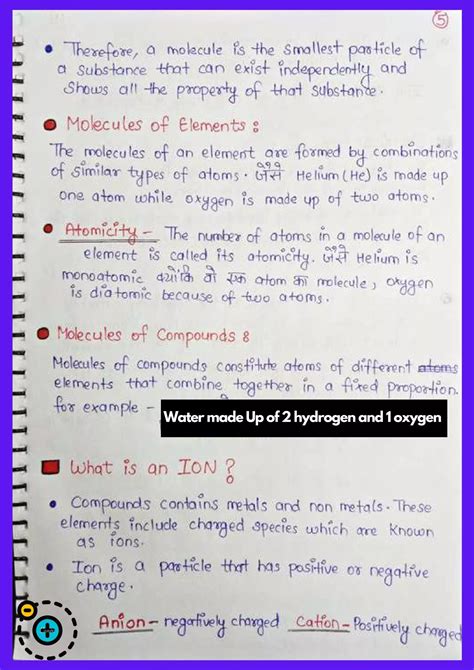 5
• Therefore, a molecule is the smallest particle of
a substance that can exist independently and
shows all the property of that substance.
Molecules of Elements :
The molecules of an element are formed by combinations
of similar types of atoms. जैसे Helium (He) is made up
one atom while oxygen is made up of two atoms.
Atomicity - The number of atoms in a molecule of an
element is called its atomicity. जैसे Helium is
monoatomic क्योंकि वो एक atom का molecule, oxygen
is diatomic because of two atoms.
Molecules of Compounds :
Molecules of compounds constitute atoms of different atoms
elements that combine together in a fixed proportion.
for example -
Water made Up of 2 hydrogen and 1 oxygen
What is an ION ?
• Compounds contains metals and non metals. These
elements include charged species which are known
as ions.
• Ion is a particle that has positive or negative
charge.
Anion - negatively charged Cation - Positively charged